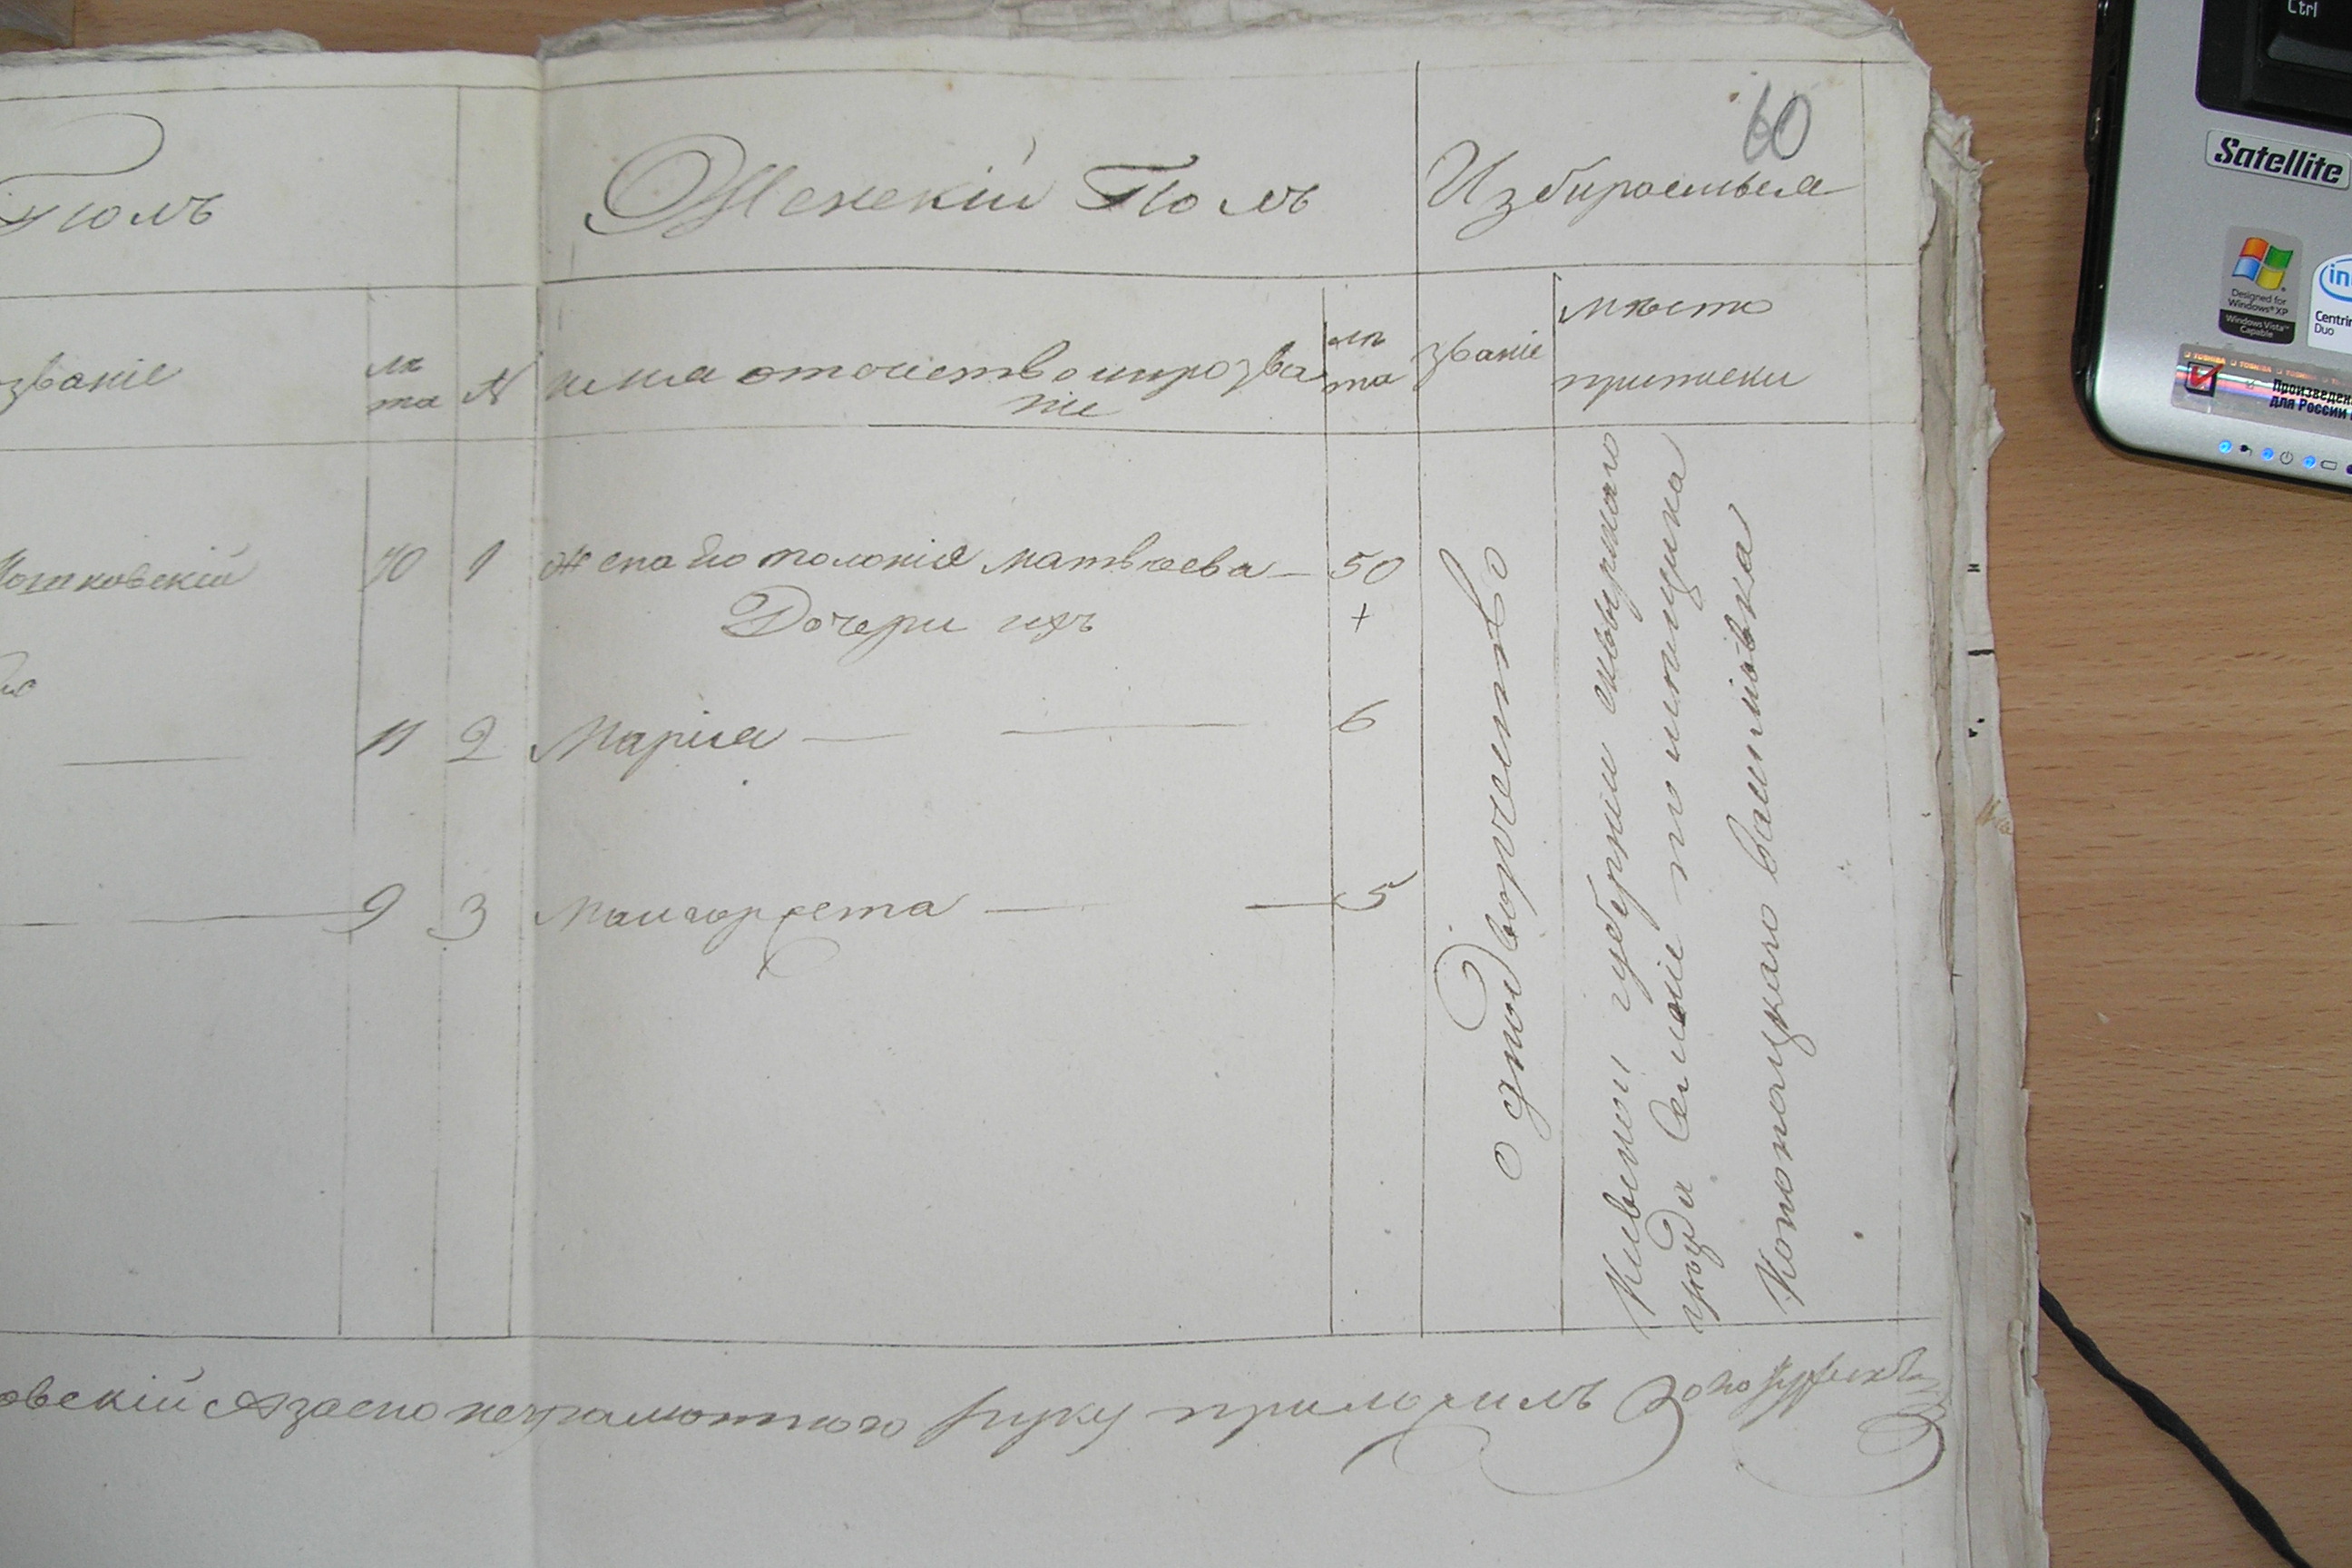 60
Полъ
Женскій Полъ
Избираемыя
званіе
лѣ
та
N
имя отечество и прозва
ніе
лѣ
та
званіе
мѣсто
приписки
40
1
Жена Его Полонія Матвѣева — 50
Дочери ихъ +
11
2
Марія — — 6
9
3
Маргорета — — 5
однодворчество
Кіевской губерніи сквирского
уѣзда Селеніе помѣщика
василювка
овскій А заего неграмотного руку приложилъ
Ctrl
Satellite
Designed for
Windows® XP
Windows Vista™
Capable
Centrin
Duo
TOSHIBA
Произведен
для России